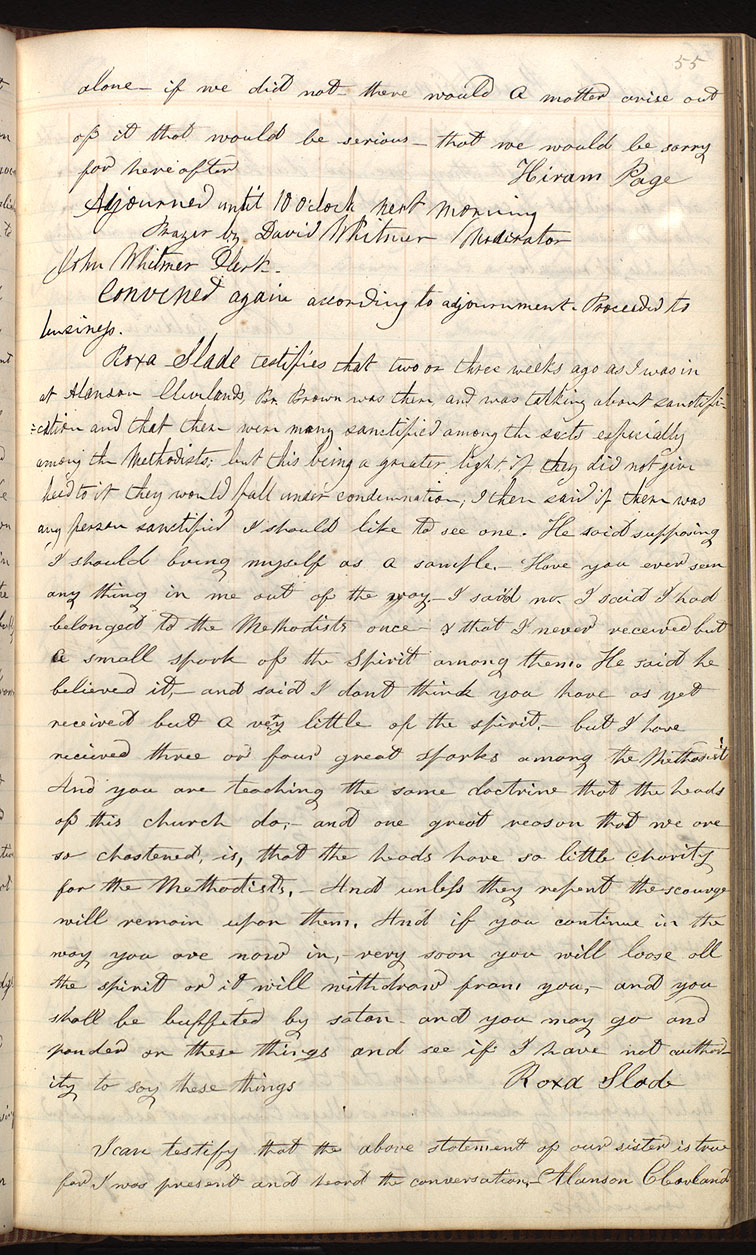 55
alone— if we did not— there would a matter arise out
of it that would be serious— that we would be sorry
for hereafter Hiram Page
Adjourned until 10 o'clock next morning
Prayer by David Whitmer Moderator
John Whitmer Clerk.
Convened again according to adjournment. Proceeded to
business.
Roxa Slade testifies that two or three weeks ago as I was in
at Alanson Clevlands, Br. Brown was there and was talking about sanctifi-
-cation and that there were many sanctified among the sects especially
among the Methodists; but this being a greater light if they did not give
heed to it they would fall under condemnation; I then said if there was
any person sanctified I should like to see one. He said supposing
I should bring myself as a sample.— Have you ever seen
any thing in me out of the way— I said no. I said I had
belonged to the Methodists once— & that I never received but
a small spark of the Spirit among them. He said he
believed it,— and said I dont think you have as yet
received but a very little of the spirit,— but I have
recieved three or four great sparks among the Methodist
And you are teaching the same doctrine that the heads
of this church do,— and one great reason that we are
so chastened, is, that the heads have so little charity
for the Methodists,— And unless they repent the scourge
will remain upon them. And if you continue in the
way you are now in, very soon you will loose all
the spirit or it will withdraw from you,— and you
shall be buffeted by satan— and you may go and
ponder on these things and see if I have not author-
ity to say these things Roxa Slade
I can testify that the above statement of our sister is true
for I was present and heard the conversation,— Alanson Cleveland